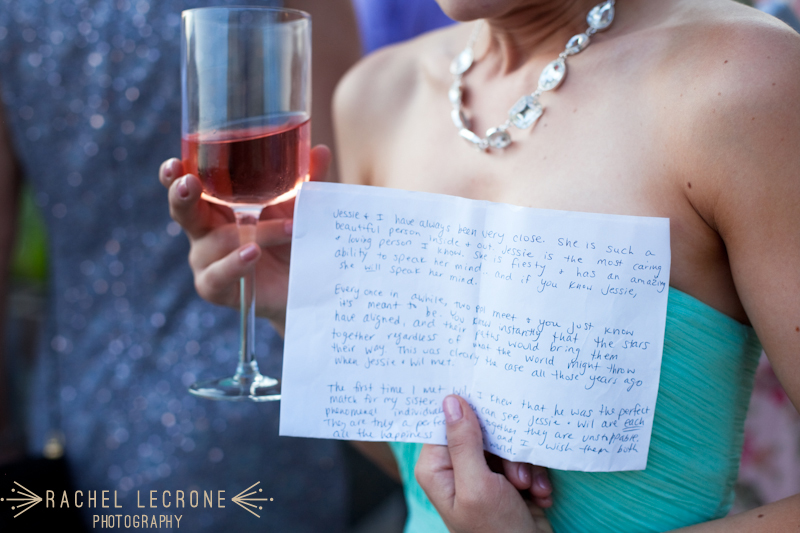 Jessie + I have always been very close. She is such a
beautiful person inside + out. Jessie is the most caring
+ loving person I know. She is fiesty + has an amazing
ability to speak her mind - and if you know Jessie,
she will speak her mind.
Every once in awhile, two meet + you just know
it's meant to be. You know instantly that the stars
have aligned, and their paths would bring them
together regardless of what the world might throw
their way. This was clearly the case all those years ago
when Jessie + Wil met.
The first time I met Wil, I knew that he was the perfect
match for my sister. can see, Jessie + Wil are each
phenomenal individuals together they are unstoppable.
They are truly a perfect and I wish them both
all the happiness world.
RACHEL LECRONE
PHOTOGRAPHY